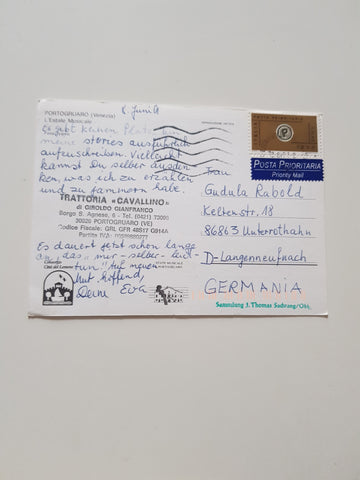 8. Juni
PORTOGRUARO (Venezia)
L'Estate Musicale
Es gibt keinen Platz
meine stories ausführlich
aufzuschreiben. Vielleicht
kannst Du selber ausden
ken, was ich zu erzählen
und zu jammern habe.
TRATTORIA «CAVALLINO»
di GIROLDO GIANFRANCO
Borgo S. Agnese, 6 - Tel. (0421)
30026 PORTOGRUARO (VE)
Codice Fiscale: GRL GFR
Partita IVA:
Es dauert jetzt schon lange
an, das "mir-selber-leid-
tun". Auf neuen
Mut hoffend,
Deine Eva
POSTA PRIORITARIA
Priority Mail
Frau
Gudula Rabold
Keltenstr. 18
86863 Unterrothahn
D-Langenneufnach
GERMANIA
Sammlung J. Thomas Sadrang/Obk.